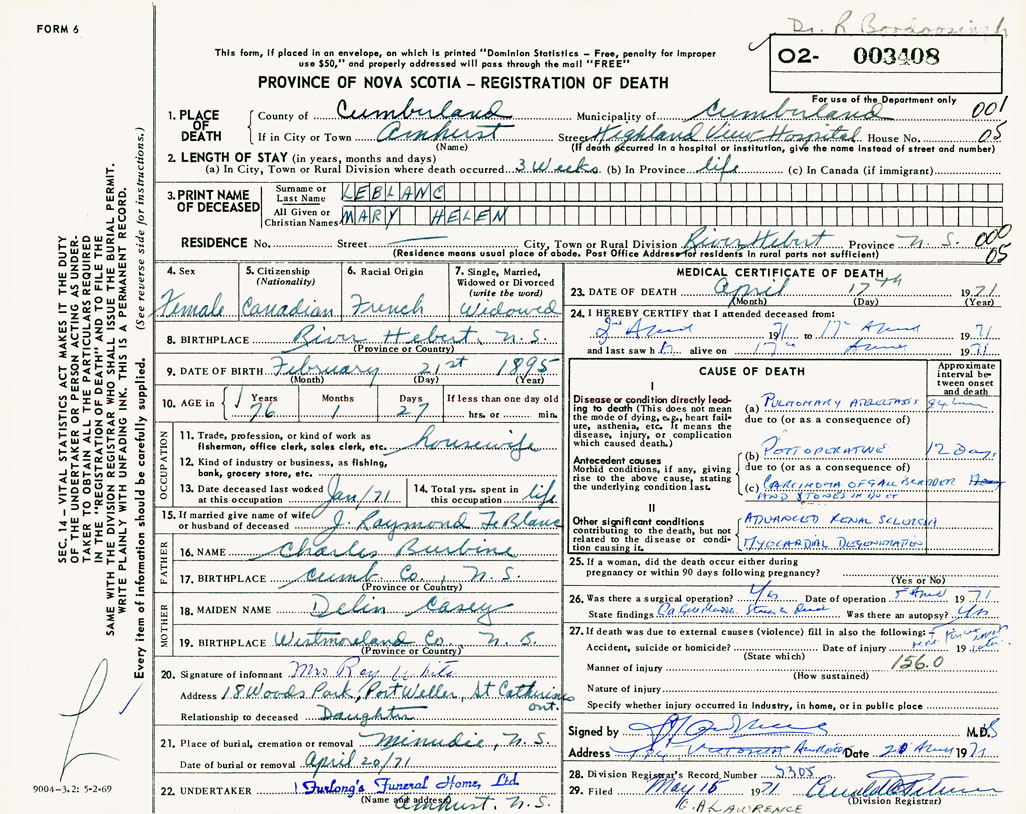 FORM 6
Dr. R
This form, if placed in an envelope, on which is printed "Dominion Statistics – Free, penalty for improper
use $50," and properly addressed will pass through the mail "FREE"
O2- 003408
PROVINCE OF NOVA SCOTIA – REGISTRATION OF DEATH
For use of the Department only
1. PLACE OF DEATH County of Cumberland Municipality of Cumberland 001
If in City or Town Amherst Street Highland View Hospital House No. 05
(Name) (If death occurred in a hospital or institution, give the name instead of street and number)
2. LENGTH OF STAY (in years, months and days)
(a) In City, Town or Rural Division where death occurred 3 Weeks (b) In Province life (c) In Canada (if immigrant)
3. PRINT NAME OF DECEASED Surname or Last Name LEBLANC
All Given or Christian Names MARY HELEN
RESIDENCE No. Street City, Town or Rural Division River Hebert Province N. S. 000
(Residence means usual place of abode. Post Office Address for residents in rural parts not sufficient) 05
SEC. 14 – VITAL STATISTICS ACT MAKES IT THE DUTY
OF THE UNDERTAKER OR PERSON ACTING AS UNDER-
TAKER TO OBTAIN ALL THE PARTICULARS REQUIRED
IN THE "REGISTRATION OF DEATH" AND TO FILE THE
SAME WITH THE DIVISION REGISTRAR WHO SHALL ISSUE THE BURIAL PERMIT.
WRITE PLAINLY WITH UNFADING INK. THIS IS A PERMANENT RECORD.
Every item of information should be carefully supplied. (See reverse side for instructions.)
4. Sex
Female
5. Citizenship
(Nationality)
Canadian
6. Racial Origin
French
7. Single, Married,
Widowed or Divorced
(write the word)
Widowed
8. BIRTHPLACE River Hebert, N.S.
(Province or Country)
9. DATE OF BIRTH February 21st 1895
(Month) (Day) (Year)
10. AGE in Years Months Days If less than one day old
76 1 27 hrs. or min.
OCCUPATION
11. Trade, profession, or kind of work as
fisherman, office clerk, sales clerk, etc. housewife
12. Kind of industry or business, as fishing,
bank, grocery store, etc.
13. Date deceased last worked
at this occupation Jan/71
14. Total yrs. spent in
this occupation life
15. If married give name of wife
or husband of deceased J. Raymond LeBlanc
FATHER
16. NAME Charles Burbine
17. BIRTHPLACE Cumb. Co., N.S.
(Province or Country)
MOTHER
18. MAIDEN NAME Delin Casey
19. BIRTHPLACE Westmoreland Co. N. B.
(Province or Country)
20. Signature of informant Mrs Ray White
Address 18 Woods Park, Port Weller, St Catherines
ont.
Relationship to deceased Daughter
21. Place of burial, cremation or removal Minudie, N.S
Date of burial or removal April 20/71
22. UNDERTAKER Furlong's Funeral Home, Ltd
(Name and address) Amherst, N.S.
9004-3.2: 5-2-69
MEDICAL CERTIFICATE OF DEATH
23. DATE OF DEATH April 17th 1971
(Month) (Day) (Year)
24. I HEREBY CERTIFY that I attended deceased from:
2nd April 1971 to 17th April 1971
and last saw h alive on 17th April 1971
CAUSE OF DEATH
Approximate
interval be-
tween onset
and death
I
Disease or condition directly lead-
ing to death (This does not mean
the mode of dying, e.g., heart fail-
ure, asthenia, etc. It means the
disease, injury, or complication
which caused death.)
(a) PULMONARY ATELECTASIS
due to (or as a consequence of)
Antecedent causes
Morbid conditions, if any, giving
rise to the above cause, stating
the underlying condition last.
(b) POSTOPERATIVE 12 Days
due to (or as a consequence of)
(c) CARCINOMA OF GALL BLADDER
AND STONES IN DUCT
II
Other significant conditions
contributing to the death, but not
related to the disease or condi-
tion causing it.
ADVANCED RENAL SCLEROSIS
MYOCARDIAL DEGENERATION
25. If a woman, did the death occur either during
pregnancy or within 90 days following pregnancy?
(Yes or No)
26. Was there a surgical operation? Yes Date of operation 5 April 1971
State findings Ca Gall Bladder Stones in Duct Was there an autopsy? Yes
27. If death was due to external causes (violence) fill in also the following:
Accident, suicide or homicide? Date of injury 19
(State which)
Manner of injury 156.0
(How sustained)
Nature of injury
Specify whether injury occurred in Industry, in home, or in public place
Signed by M.D.
Address Victoria Amherst Date 20 April 1971
28. Division Registrar's Record Number 5305
29. Filed May 15 1971
(Division Registrar)
G. A LAWRENCE